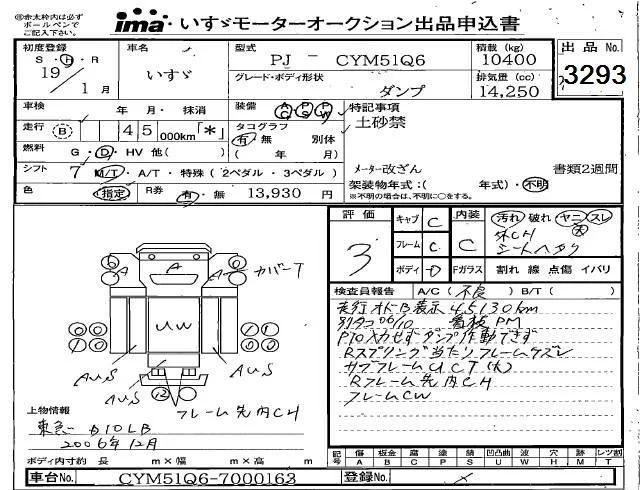 ※赤太枠内は必ず
ボールペンで
ご記入下さい。
ima いすゞモーターオークション出品申込書
初度登録 車名 型式 積載 (kg) 出品 No.
S・H・R いすゞ PJ - CYM51Q6 10400 3293
19年 1月 グレード・ボディ形状 ダンプ 排気量 (cc) 14,250
車検 年 月・ 抹消 装備 AC PS PW 特記事項
土砂禁
走行 B 45 000km「*」 タコグラフ 有・無 別体
燃料 G・D・HV 他( ) ( 年 月) メーター改ざん 書類2週間
シフト 7 M/T・A/T・特殊(2ペダル・3ペダル) 架装物年式:( 年式)・不明
※不明の場合は、不明に○をする。
色 指定 R券 有・無 13,930 円
評価 3
キャブ C 内装 C 汚れ 破れ ヤニ スレ
フレーム C 外CH 大
シートヘタリ
ボディ D Fガラス 割れ 線 点傷 イバリ
検査員報告 A/C(不良) B/T( )
走行 オドB表示 45130km
別タコ 06/10 看板PM
PTO入らずダンプ作動できず
Rスプリング当たりフレームケズレ
サブフレームUCT(大)
Rフレーム先内CH
フレームCW
A A A カバーT
UW
AUS AUS
フレーム先内CH
上物情報
東急 D10LB
2006年12月
ボディ内寸約 長 m×幅 m×高 m
記号 傷 A 板金 B 腐 C 塗 P 錆 S 凹凸曲 U 波 W 穴 H 跡 M レンズ割 T
車台No. CYM51Q6-7000163 登録No.